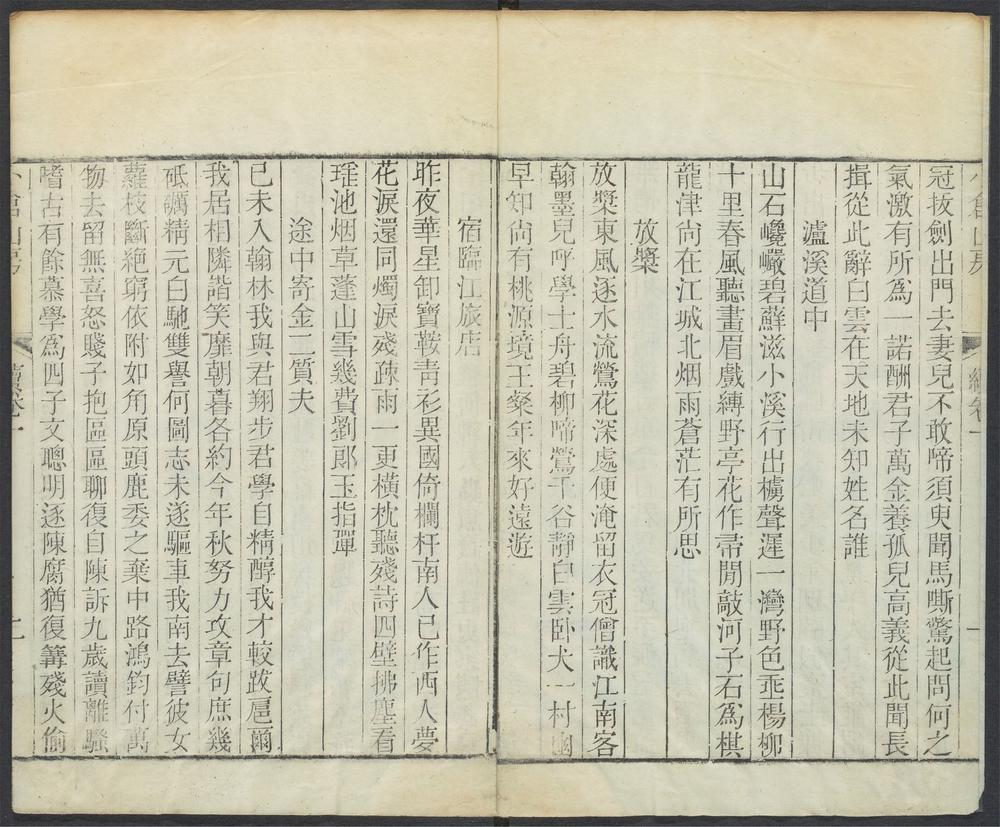 冠拔劍出門去妻兒不敢啼須臾聞馬嘶驚起問何之
氣激有所為一諾酬君子萬金養孤兒高義從此聞長
揖從此辭白雲在天地未知姓名誰
瀘溪道中
山石巉巖碧蘚滋小溪行出櫓聲遲一灣野色垂楊柳
十里春風聽畫眉戲縛野亭花作帚閒敲河子石為棋
龍津尙在江城北烟雨蒼茫有所思
放槳
放槳東風逐水流鶯花深處便淹留衣冠僧識江南客
翰墨兒呼學士舟碧柳啼鶯千谷靜白雲卧犬一村幽
早知尙有桃源境王粲年來好遠遊
宿臨江旅店
昨夜華星卸寶鞍靑衫異國倚欄杆南人已作西人夢
花淚還同燭淚殘疎雨一更橫枕聽殘詩四壁拂塵看
瑤池烟草蓬山雪幾費劉郎玉指彈
途中寄金二質夫
己未入翰林我與君翔步君學自精醇我才較跋扈爾
我居相隣諧笑靡朝暮各約今年秋努力攻章句庶幾
砥礪精元白馳雙譽何圖志未遂驅車我南去譬彼女
蘿枝斷絕窮依附如角原頭鹿委之棄中路鴻鈞付萬
物去留無喜怒賤子抱區區聊復自陳訴九歲讀離騷
嗜古有餘慕學為四子文聰明逐陳腐猶復篝殘火偷
小倉山房
續卷一
二